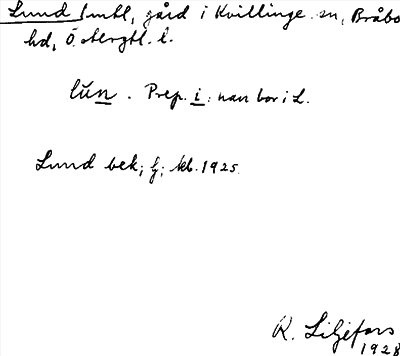 Lund Smtl, gård i Kvillinge sn, Bråbo
hd, Östergtl. l.
lŭn. Prep. i: nan bor i L.
Lund bek; fj; kb. 1925.
R. Liljefors
1928